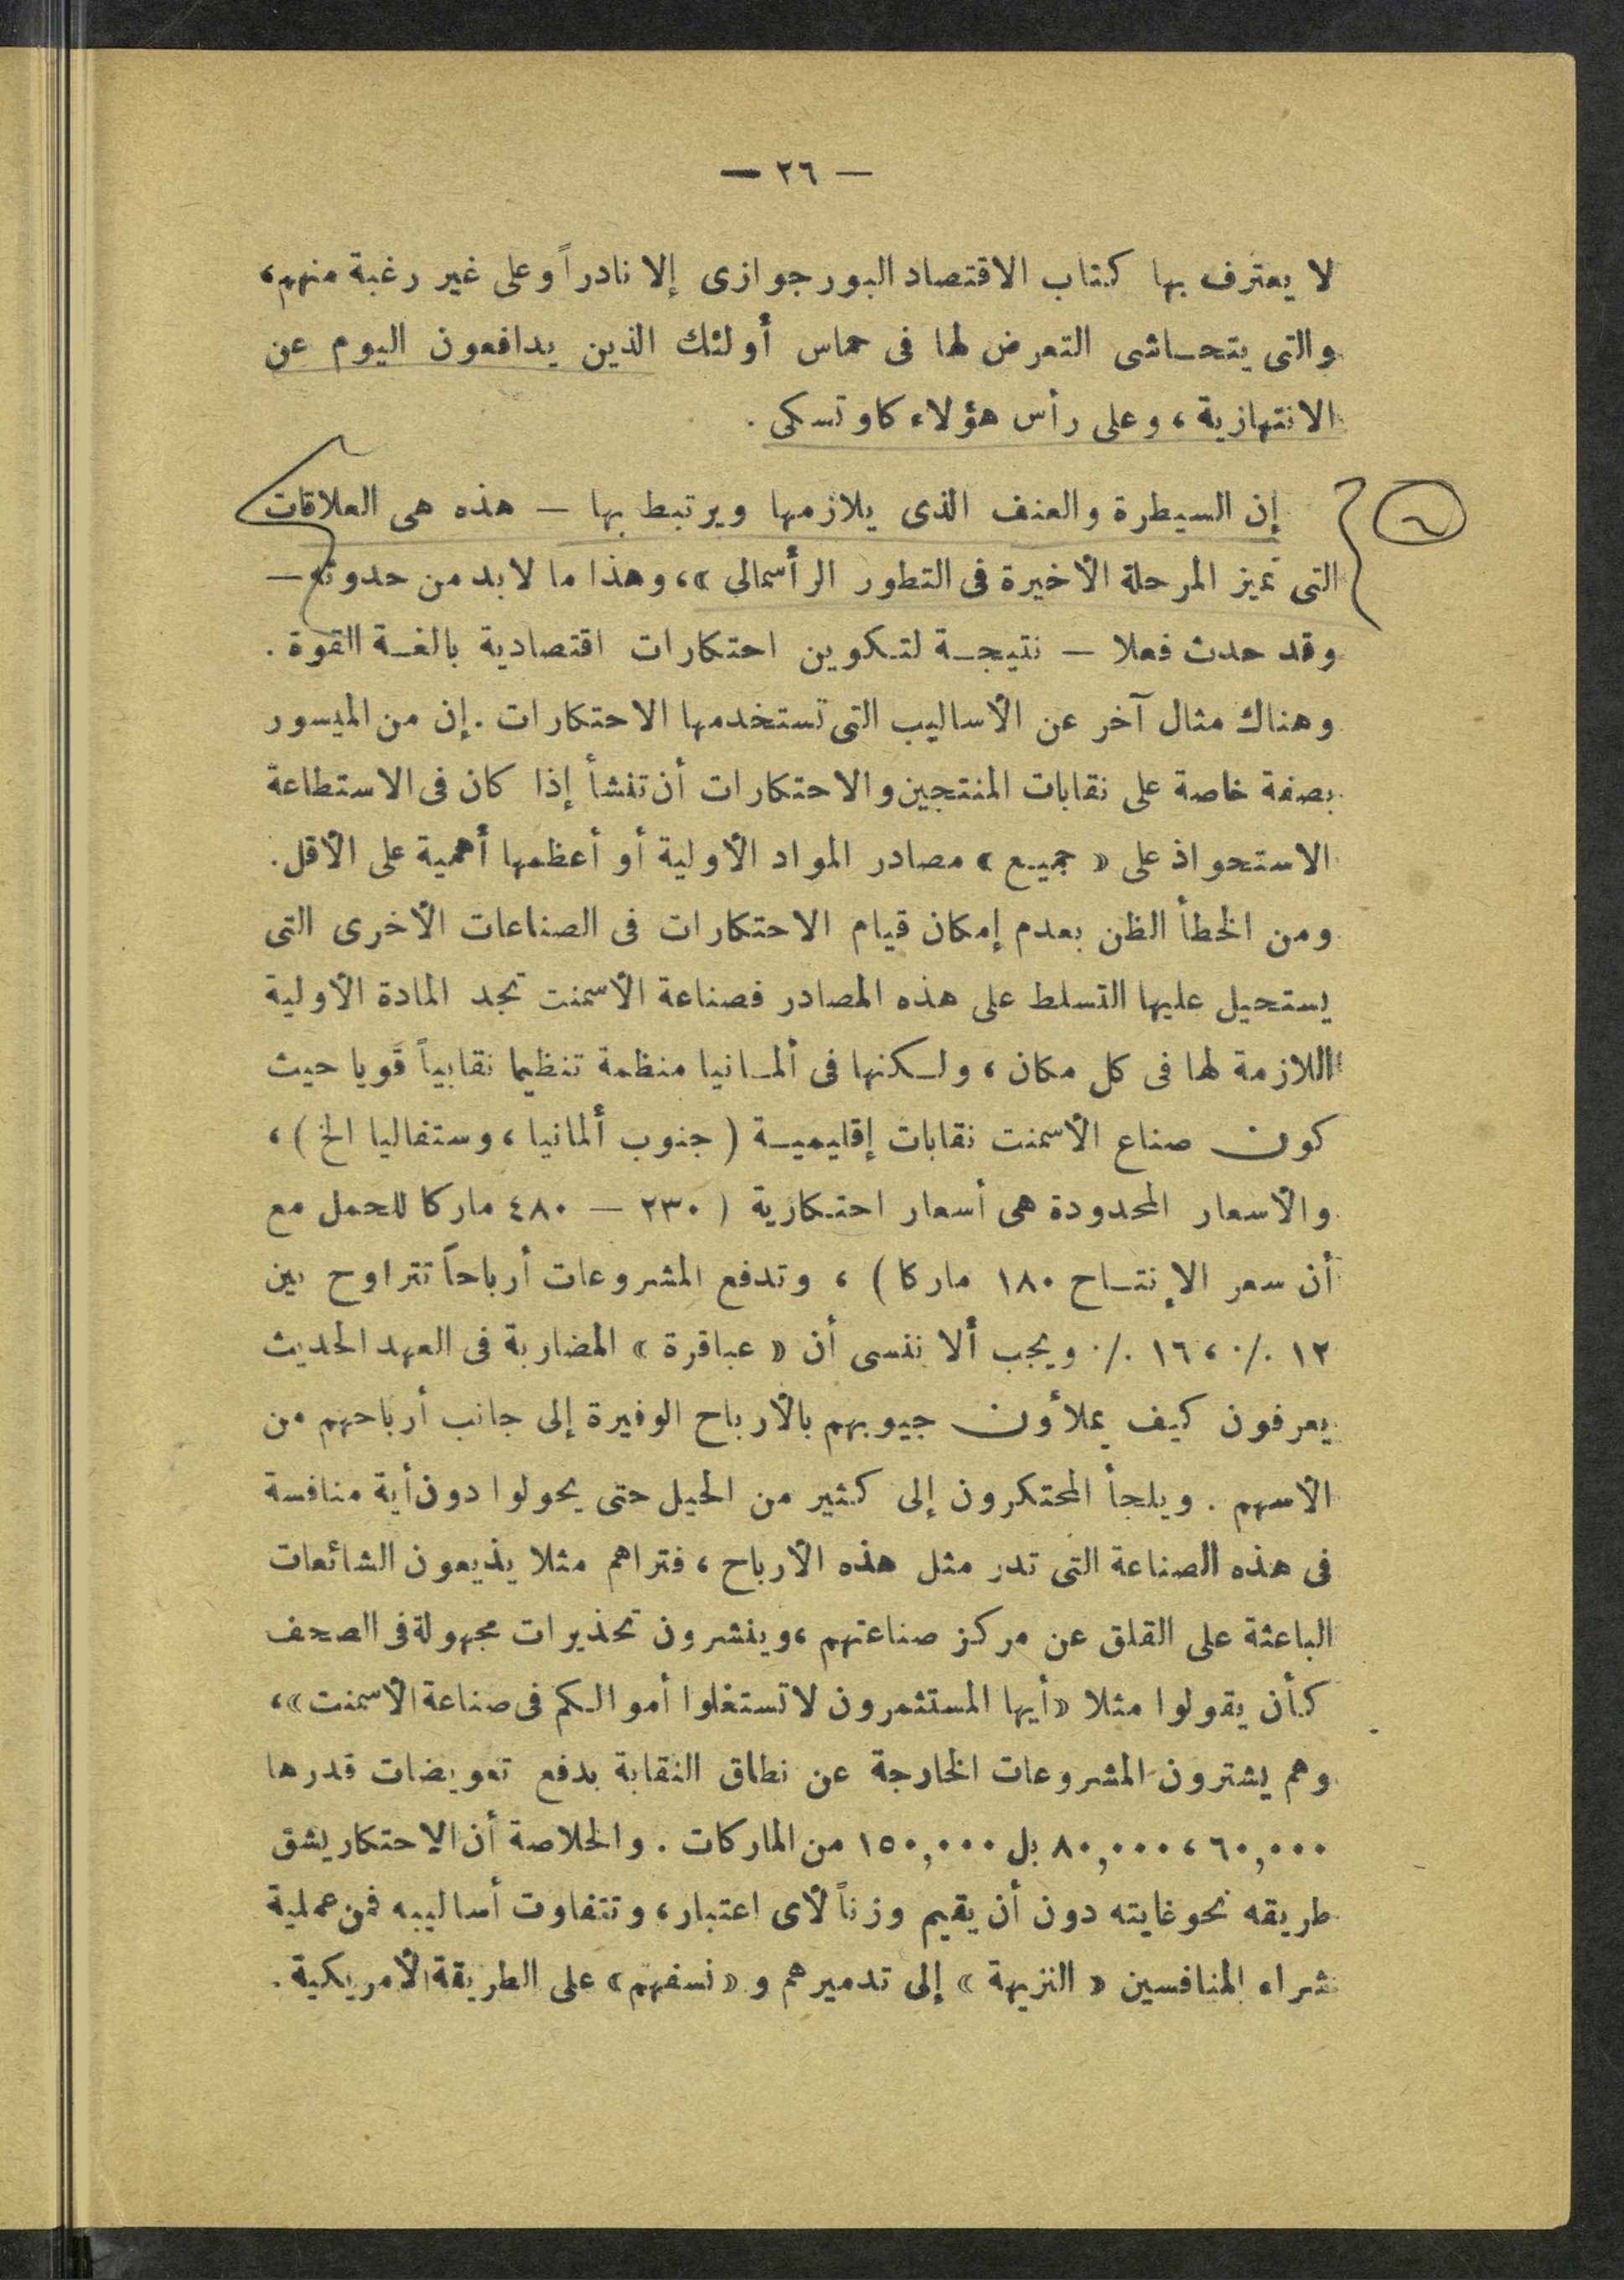 — ٢٦ —
لا يعترف بها كتاب الاقتصاد البورجوازى إلا نادراً وعلى غير رغبة منهم،
والتى يتحاشى التعرض لها فى حماس أولئك الذين يدافعون اليوم عن
الانتهازية، وعلى رأس هؤلاء كاوتسكى .
إن السيطرة والعنف الذى يلازمها ويرتبط بها — هذه هى العلاقات
التى تميز المرحلة الأخيرة فى التطور الرأسمالى »، وهذا ما لابد من حدوثه —
وقد حدث فعلا — نتيجة لتكوين احتكارات اقتصادية بالغة القوة .
وهناك مثال آخر عن الأساليب التى تستخدمها الاحتكارات . إن من الميسور
بصفة خاصة على نقابات المنتجين والاحتكارات أن تنشأ إذا كان فى الاستطاعة
الاستحواذ على « جميع » مصادر المواد الأولية أو أعظمها أهمية على الأقل .
ومن الخطأ الظن بعدم إمكان قيام الاحتكارات فى الصناعات الأخرى التى
يستحيل عليها التسلط على هذه المصادر فصناعة الأسمنت تجد المادة الأولية
اللازمة لها فى كل مكان، ولكنها فى ألمانيا منظمة تنظيما نقابياً قويا حيث
كون صناع الأسمنت نقابات إقليمية ( جنوب ألمانيا، وستفاليا الخ ) ،
والأسعار المحدودة هى أسعار احتكارية ( ٢٣٠ — ٤٨٠ ماركا للحمل مع
أن سعر الإنتاح ١٨٠ ماركا ) ، وتدفع المشروعات أرباحاً تتراوح بين
١٢ ٪، ١٦ ٪ ويجب ألا ننسى أن « عباقرة » المضاربة فى العهد الحديث
يعرفون كيف يملأون جيوبهم بالأرباح الوفيرة إلى جانب أرباحهم من
الأسهم . ويلجأ المحتكرون إلى كثير من الحيل حتى يحولوا دون أية منافسة
فى هذه الصناعة التى تدر مثل هذه الأرباح، فتراهم مثلا يذيعون الشائعات
الباعثة على القلق عن مركز صناعتهم، وينشرون تحذيرات مجهولة فى الصحف
كأن يقولوا مثلا «أيها المستثمرون لا تستغلوا أموالكم فى صناعة الأسمنت»،
وهم يشترون المشروعات الخارجة عن نطاق النقابة بدفع تعويضات قدرها
٦٠,٠٠٠، ٨٠,٠٠٠ بل ١٥٠,٠٠٠ من الماركات . والخلاصة أن الاحتكار يشق
طريقه نحو غايته دون أن يقيم وزناً لأى اعتبار، وتتفاوت أساليبه فمن عملية
شراء المنافسين « النزيهة » إلى تدميرهم و « نسفهم » على الطريقة الأمريكية .